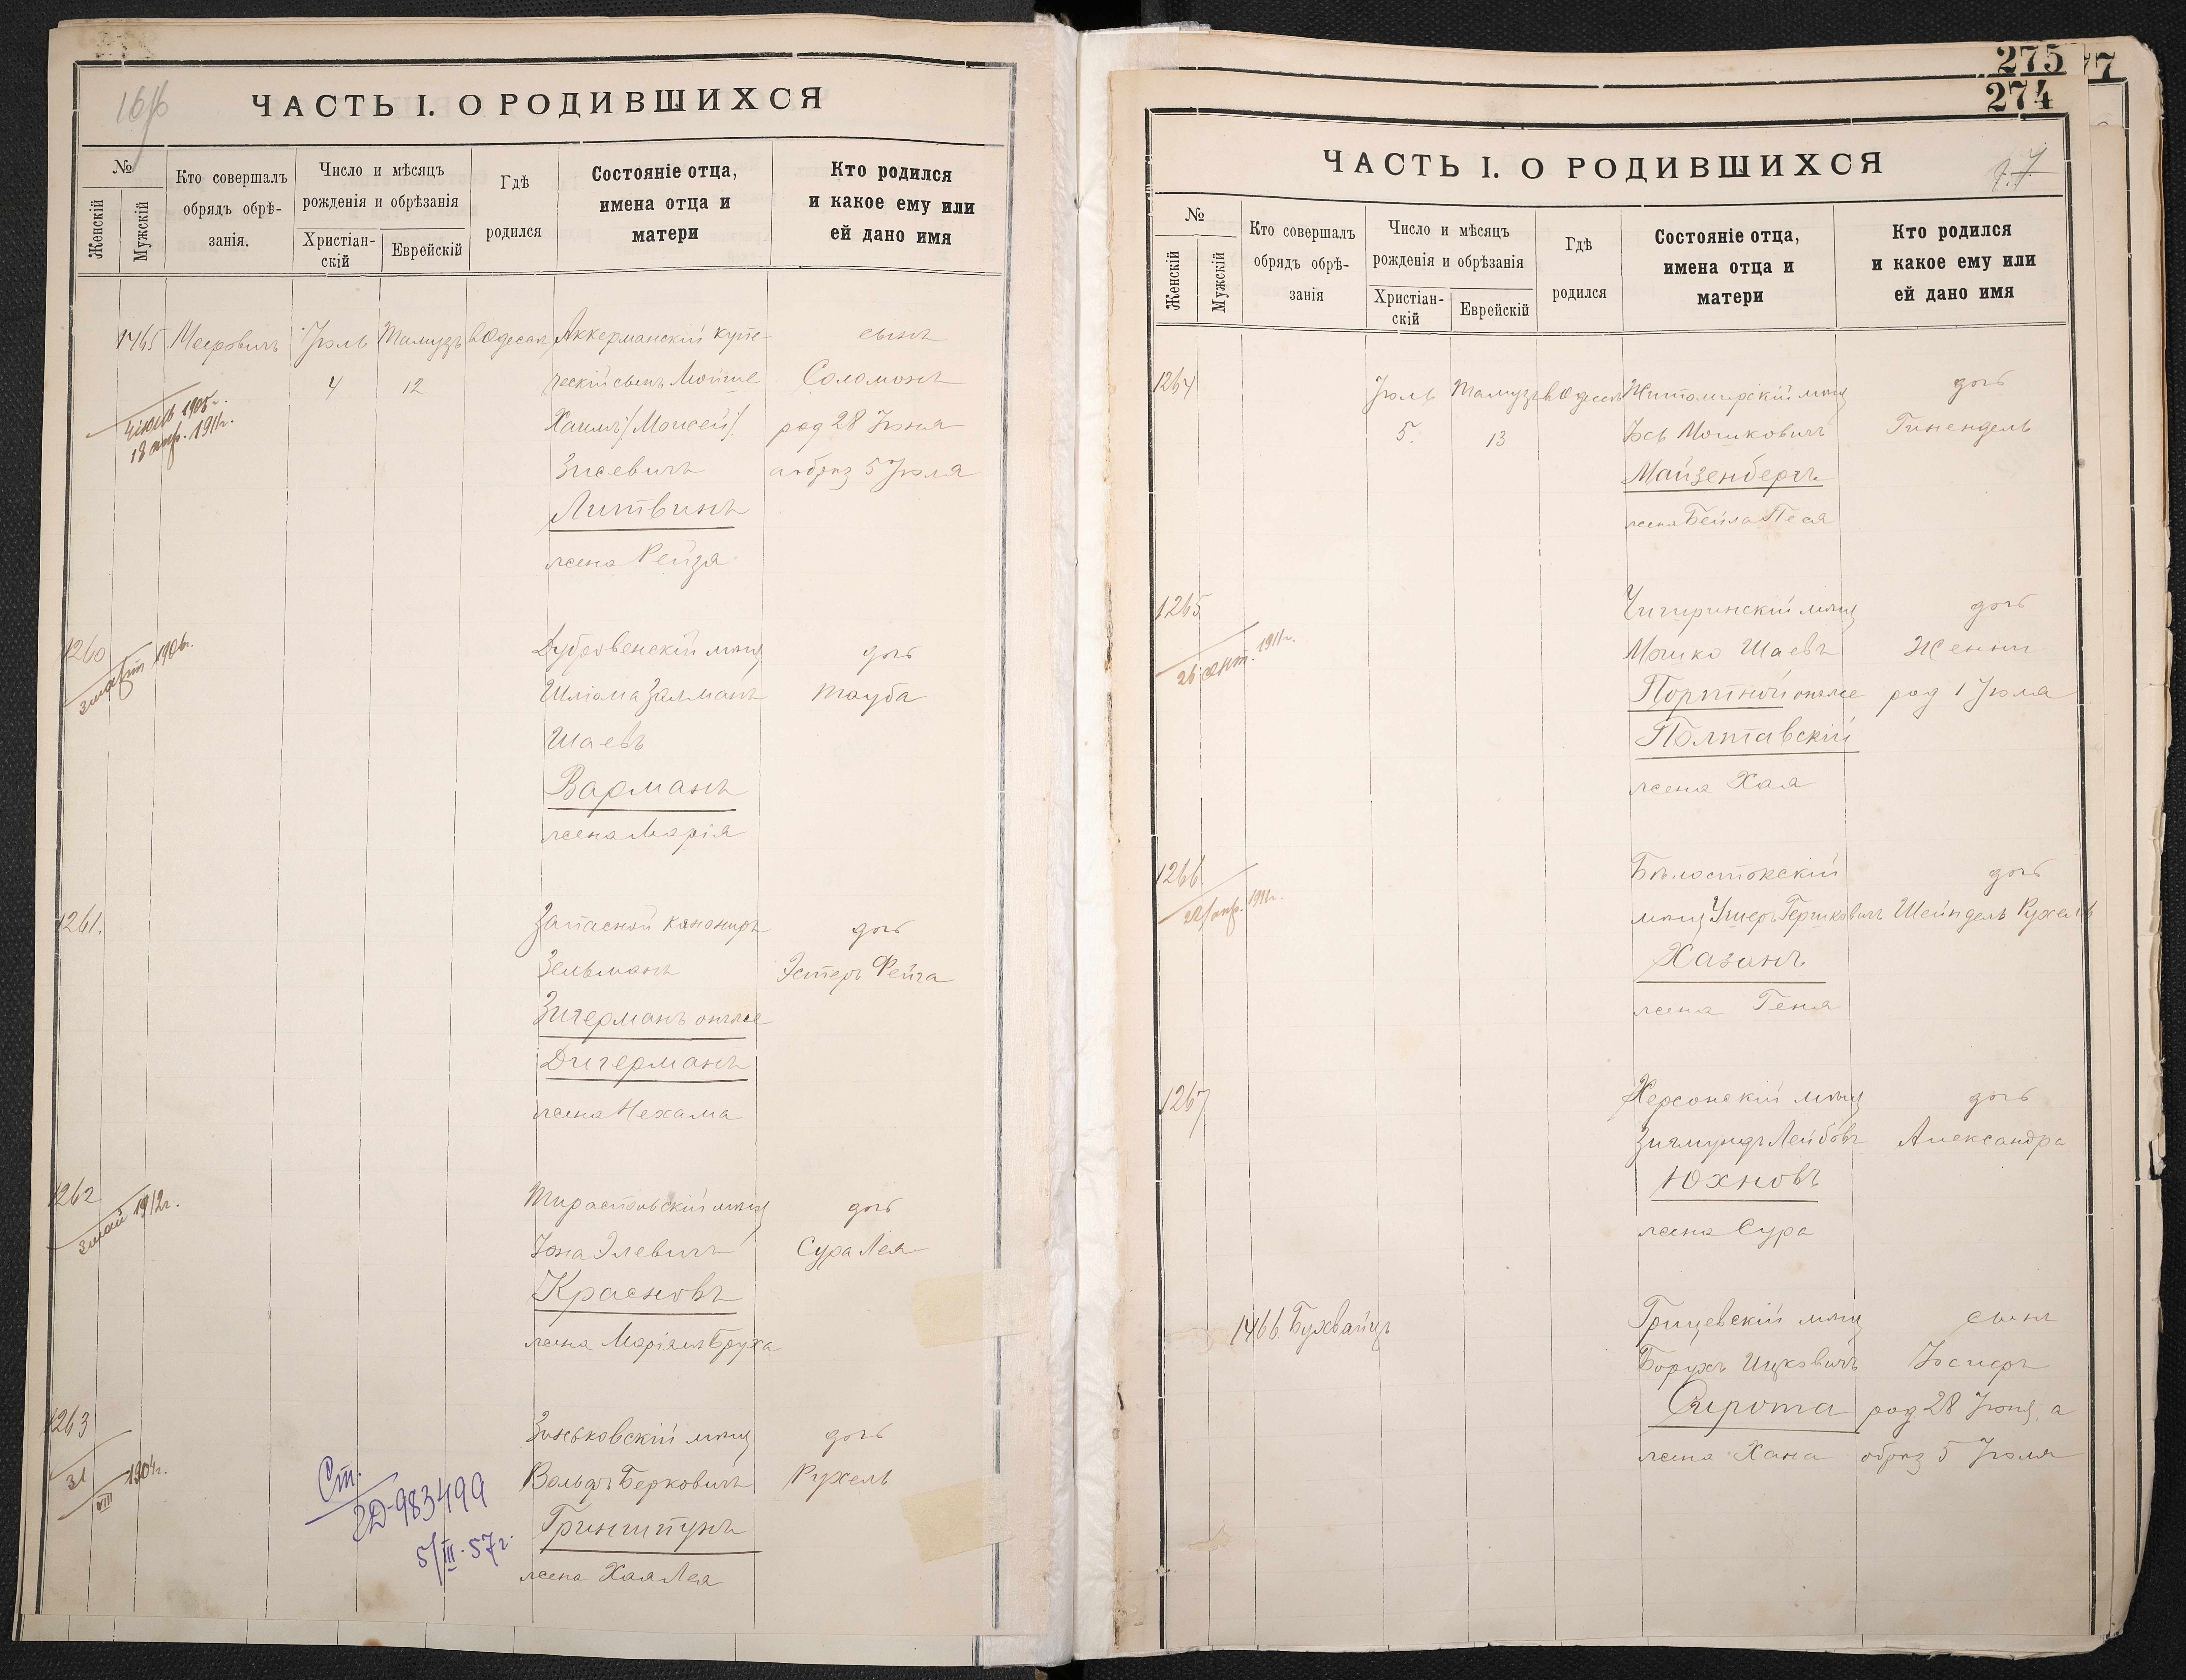 ЧАСТЬ I. О РОДИВШИХСЯ
№
Женскій
Мужскій
Кто совершалъ
обрядъ обрѣ-
занія.
Число и мѣсяцъ
рожденія и обрѣзанія
Христіан-
скій
Еврейскій
Гдѣ
родился
Состояніе отца,
имена отца и
матери
Кто родился
и какое ему или
ей дано имя
1465 Мееровичъ Іюль Тамузъ в Одессѣ Аккерманскій купе- сынъ
4 12 ческій сынъ Мойше Соломонъ
Хаимъ/Моисей/ род 28 Іюня
Зисевичъ а обрѣз 5 Іюля
Литвинъ
жена Рейза
18 апр. 1911г.
1260 Дубровенскій мѣщ дочь
1906г.
Шліома Залманъ Тауба
Шаевъ
Варманъ
жена Марія
1261. Запасной канониръ дочь
Зельманъ Эстеръ Фейга
Зигерманъ онъ же
Дигерманъ
жена Нехама
1262 Тираспольскій мѣщ дочь
3 май 1912г.
Іона Элевичъ Сура Лея
Красновъ
жена Маріямъ Бруха
1263 Зиньковскій мѣщ дочь
31
VIII 1904г.
Вольфъ Берковичъ Рухель
Гринштунъ
жена Хая Лея
Ст.
2Д-983499
5/III-57г.
275
7
274
ЧАСТЬ I. О РОДИВШИХСЯ
№
Женскій
Мужскій
Кто совершалъ
обрядъ обрѣ-
занія
Число и мѣсяцъ
рожденія и обрѣзанія
Христіан-
скій
Еврейскій
Гдѣ
родился
Состояніе отца,
имена отца и
матери
Кто родился
и какое ему или
ей дано имя
1264 Іюль Тамузъ в Одессѣ Житомирскій мѣщ дочь
5. 13 Іось Мошковичъ Гинендель
Майзенбергъ
жена Бейла Песя
1265 Чигиринскій мѣщ дочь
26 сент. 1911г.
Мошко Шаевъ Женни
Портной онъ же род 1 Іюля
Полтавскій
жена Хая
1266 Бѣлостокскій дочь
мѣщ Ушеръ Гершковичъ Шейндель Рухель
Хазанъ
жена Геня
1267 Херсонскій мѣщ дочь
Зигмундъ Лейбовъ Александра
Юхновъ
жена Сура
1466 Бухвайцъ Грицевскій мѣщ сынъ
Борухъ Ицковичъ Іосифъ
Сирота род 28 Іюня, а
жена Хана обрѣз 5 Іюля